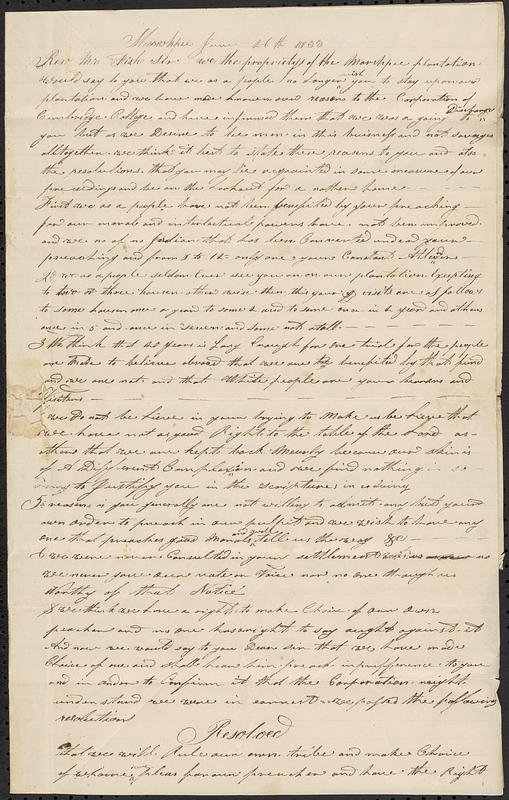 Marshpee June 26th 1833
Rev Mr Fish Sir we the proprietors of the Marshpee plantation
would say to you that we as a people no longer wish you to stay upon our
plantation and we have made known our reasons to the Corporation of
Cambridge College and have informed them that we was a going to Discharge
you but as we Desire to be men in this business and not savages
alltogether we think it best to state these reasons to you and also
the resolutions that you may be acquainted in some measure of our
proceedings and be on the outlook for a nother home
First we as a people have not ben benefited by your preaching
for our moral and interlectual powers have not ben improved
and we no of no Indian that has ben Converted under your
preaching and from 8 to 12 only are your Constant Attenders
2d we as a people seldom Ever see you on our own plantation Excepting
to two or three houses other wise then this your visits are as follows
to some houses one a year to some 2 and to some once in 2 year and others
one in 5 and once in seven and some not atall
3 We think that 20 years is Long Enough for one trial for the people
are made to believe abroad that we are benefited by that fund
and we are not and that White people are your hearers and
4 we Do not believe in your trying to Make us believe that
we have not as good Rights to the table of the Lord as
others that we are kept back Meerly because our skin is
of A Different Complexion and we find nothing in so
doing to Justify you in the scriptures in so doing
5 reason is you generally are not willing to admit any but your
own order to preach in our pulpit and we wish to have any
one that preaches good Morals and will tell us the way &c
6 we were never Consulted in your settlement no
we never gave our vote or Voice nor no one through us
Worthy of that Notice
& we think we have a right to make Choice of our own
preacher and no one has aright to say aught against it
And now we would say to you Dear sir that we have made
Choice of one and shall hear him preach in prefference to you
and in order to Confirm it that the Corporation might
understand we were in earnest we passed the following
resolutions
Resolved
that we will Rule our own tribe and make Choice
of whome we pleas for our preacher and have the Right